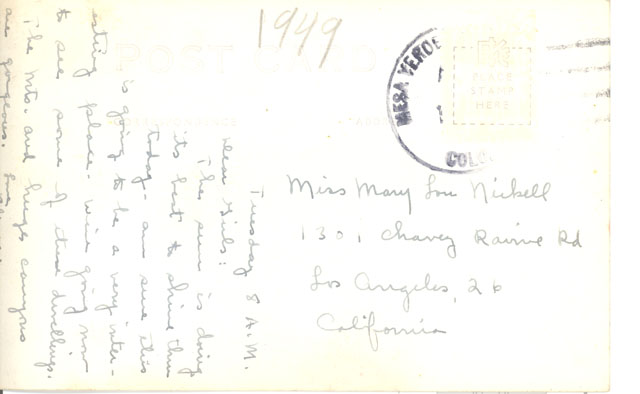 1949
POST CARD
MESA VERDE
COLO
PLACE
STAMP
HERE
Tuesday 8 A.M.
Dear Girls:
The sun is doing
its best to shine thru
today - am sure this
is going to be a very inter-
esting place - we're going now
to see some of the dwellings.
The mts. and huge canyons
are gorgeous. Love
Miss Mary Lou Nickell
1301 Chavez Ravine Rd
Los Angeles, 26
California